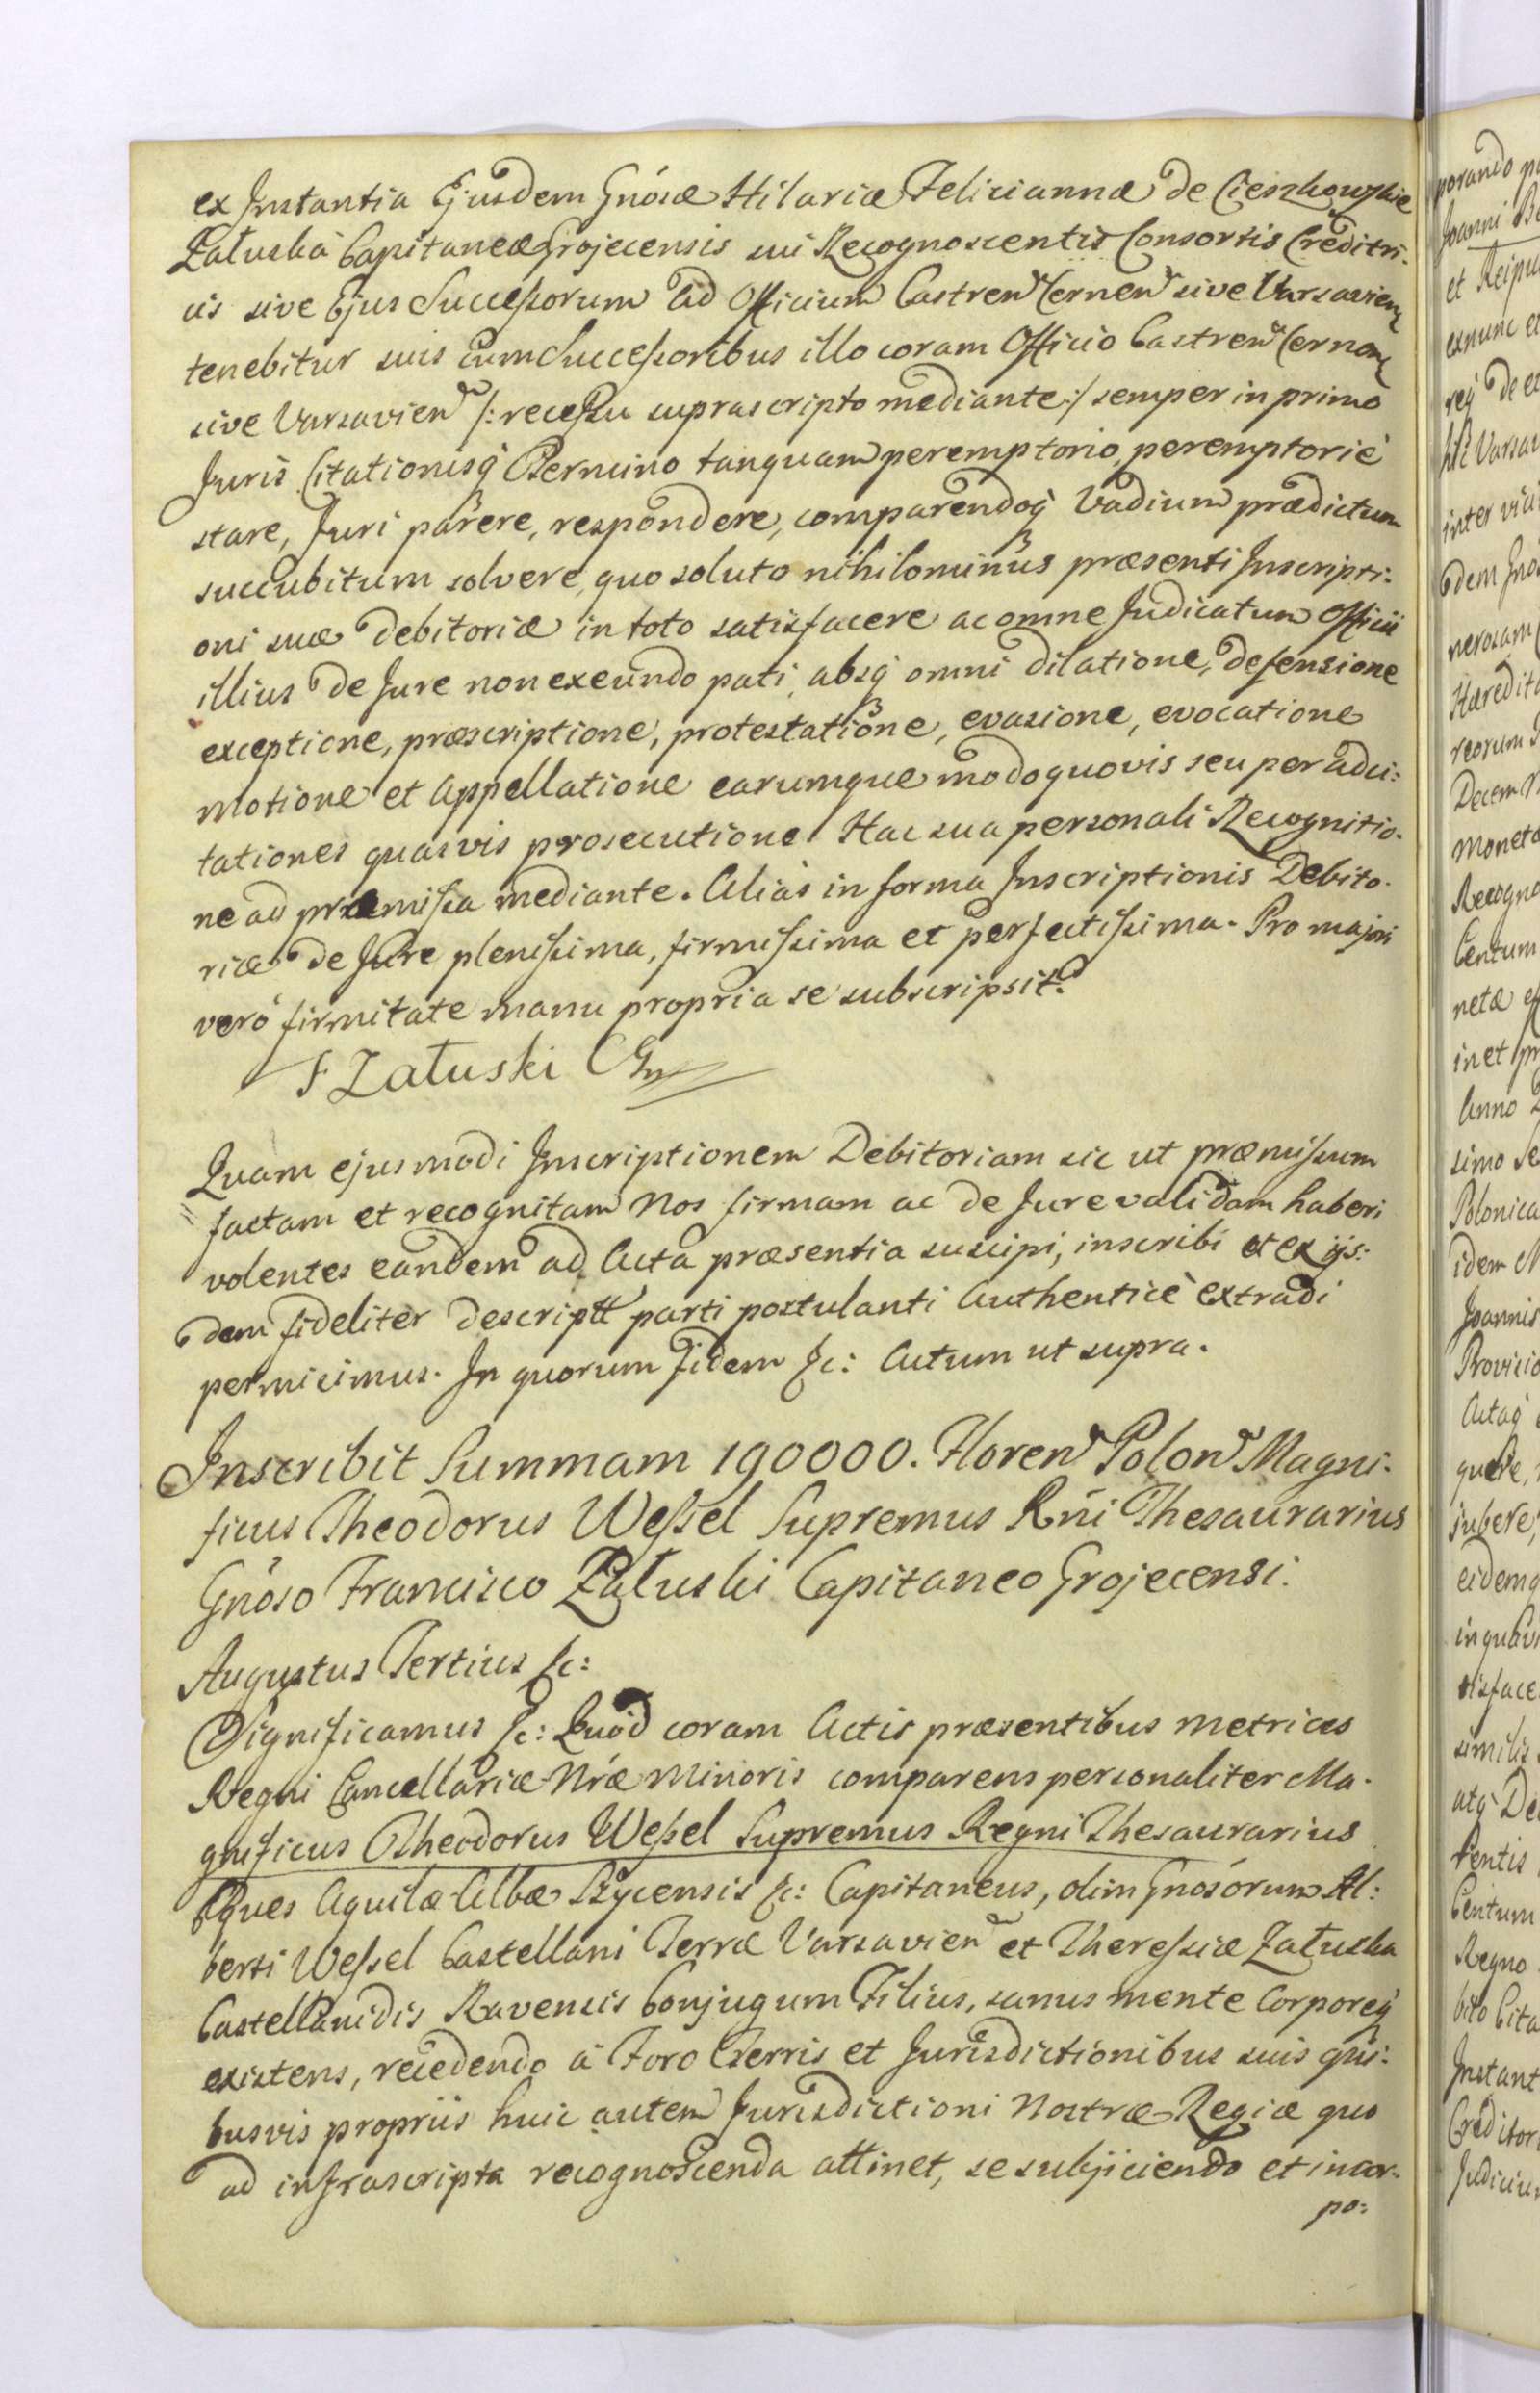 ex Instantia Ejusdem Gnósæ Hilariæ Feliciannæ de Cieszkowskie
Załuska Capitaneæ Grojecensis sui Recognoscentis Consortis Creditri:
cis sive Ejus Successorum ad Officium Castren Cernen sive Varsavien
tenebitur suis cum Successoribus illo coram Officio Castren Cernen
sive Varsavien /: recessu suprascripto mediante :/ semper in primo
Juris Citationisq́ Termino tanquam peremptorio, peremptoriè
stare, Juri parere, respondere, comparendoq́ Vadium prædictum
succubitum solvere, quo soluto nihilominus præsenti Inscripti:
oni suæ debitoriæ in toto satisfacere ac omne Judicatum Officii
illius de Jure non exeundo pati, absq́ omni dilatione, defensione
exceptione, præscriptione, protestatione, evasione, evocatione
motione et Appellatione earumque modo quovis seu per adci:
tationes quasvis prosecutione. Hac sua personali Recognitio-
ne ad præmissa mediante. Aliàs in forma Inscriptionis Debito-
riæ de Jure plenissima, firmissima et perfectissima. Pro majori
verò firmitate manu propria se subscripsit.
F Załuski
Quam ejusmodi Inscriptionem Debitoriam sic ut præmissum
factam et recognitam Nos firmam ac de Jure validam haberi
volentes eandem ad Acta præsentia suscipi, inscribi et ex ijs:
dem fideliter descriptt parti postulanti Authenticè extradi
permisimus. In quorum fidem &c: Actum ut supra.
Inscribit Summam 190000. Floren Polon Magni-
ficus Theodorus Wessel Supremus Rńi Thesaurarius
Gnoso Francisco Załuski Capitaneo Grojecensi.
Augustus Tertius &c:
Significamus &c: Quod coram Actis præsentibus Metrices
Regni Cancellariæ Nræ Minoris comparens personaliter Ma-
gnificus Theodorus Wessel Supremus Regni Thesaurarius
Eques Aquilæ Albæ Szycensis &c: Capitaneus, olim Gnosorum Al:
berti Wessel Castellani Terræ Varsavien et Theressiæ Załuska
Castellanidis Ravensis Conjugum Filius, sanus mente Corporeq́
existens, recedendo à Foro Terris et Jurisdictionibus suis qui:
busvis propriis huic autem Jurisdictioni Nostræ Regiæ quo
ad infrascripta recognoscenda attinet, se subjiciendo et incor-
po: